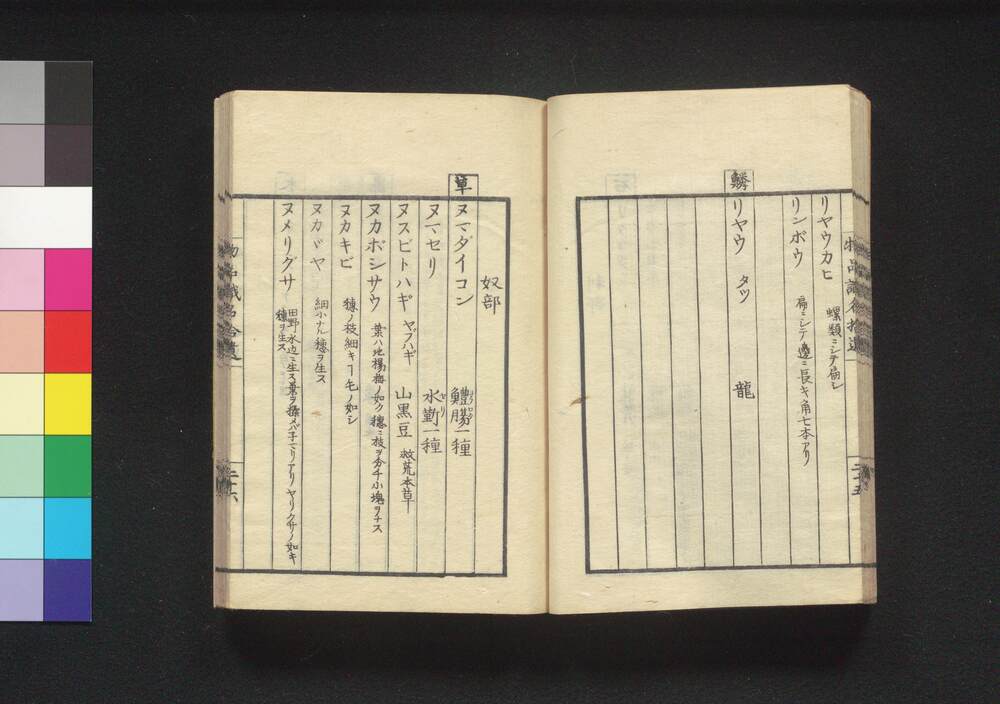 リヤウカヒ 螺類ニシテ扁シ
リンボウ 扁ニシテ邊ニ長キ角七本アリ
鱗
リヤウ タツ 龍
奴部
草
ヌマダイコン 鱧膓一種
ヌマセリ 水勤一種
ヌスビトハギ ヤブハギ 山黒豆 救荒本草
ヌカボシサウ 葉ハ地楊梅ノ如ク穂ニ枝ヲ分チ小塊ヲナス
ヌカキビ 穂ノ枝細キ ノ如シ
ヌカガヤ 細小ナル穂ヲ生ス
ヌメリグサ 田野水辺ニ生ス葉ヲ揉メバ子マリアリ ヤリクサノ如キ
穂ヲ生ス
物品識名拾遺
二十六